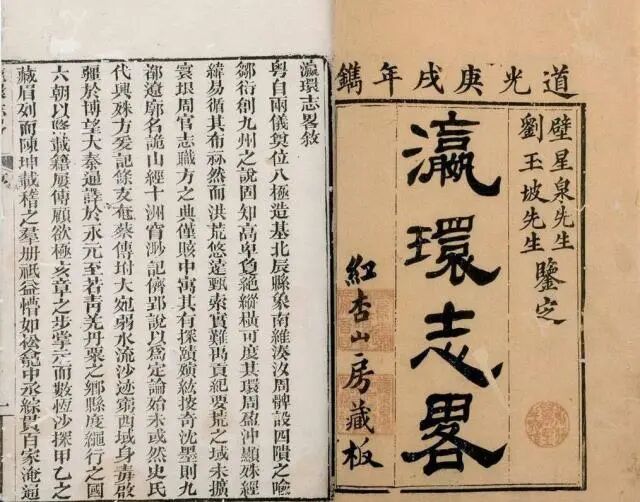 道光庚戌年鐫
壁星泉先生
劉玉坡先生
鑒定
瀛環志畧
紅杏山房藏板
瀛環志畧敘
粵自兩儀奠位八極造基北辰縣象南維湊周髀設四隤之喻
鄒衍創九州之說固知高卑負絶縱橫可度其環周盈沖顯殊經
緯易循其布然而洪荒悠遠甄索實難禹貢紀要荒之域未擴
寰垠周官志職方之典僅賅中寓其有探賾紘按奇沈墨則九
都遼廓名詭山經十洲窅渺記儕郢說以爲定論始未或然史氏
代興殊方爰記條支奄蔡傳坿大宛弱水流沙迹窮西域身毒啟
彊於博望大秦通譯於永元至若靑羌丹粟之鄉縣度繩行之國
六朝以降載籍屢傳顧欲極亥章之步掌上而數恆沙探甲乙之
藏眉列而陳坤載稽之羣册祇益懵如松龕中丞綜貫百家淹通